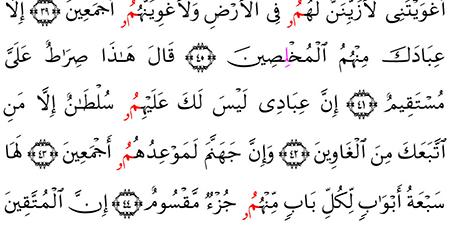 أَغْوَيْتَنِى لَأُزَيِّنَنَّ لَهُمُۥ فِى ٱلْأَرْضِ وَلَأُغْوِيَنَّهُمُۥ أَجْمَعِينَ ﴿٣٩﴾ إِلَّا
عِبَادَكَ مِنْهُمُ ٱلْمُخْلِصِينَ ﴿٤٠﴾ قَالَ هَٰذَا صِرَٰطٌ عَلَىَّ
مُسْتَقِيمٌ ﴿٤١﴾ إِنَّ عِبَادِى لَيْسَ لَكَ عَلَيْهِمُۥ سُلْطَٰنٌ إِلَّا مَنِ
ٱتَّبَعَكَ مِنَ ٱلْغَاوِينَ ﴿٤٢﴾ وَإِنَّ جَهَنَّمَ لَمَوْعِدُهُمُۥ أَجْمَعِينَ ﴿٤٣﴾ لَهَا
سَبْعَةُ أَبْوَٰبٍ لِّكُلِّ بَابٍ مِّنْهُمُۥ جُزْءٌ مَّقْسُومٌ ﴿٤٤﴾ إِنَّ ٱلْمُتَّقِينَ